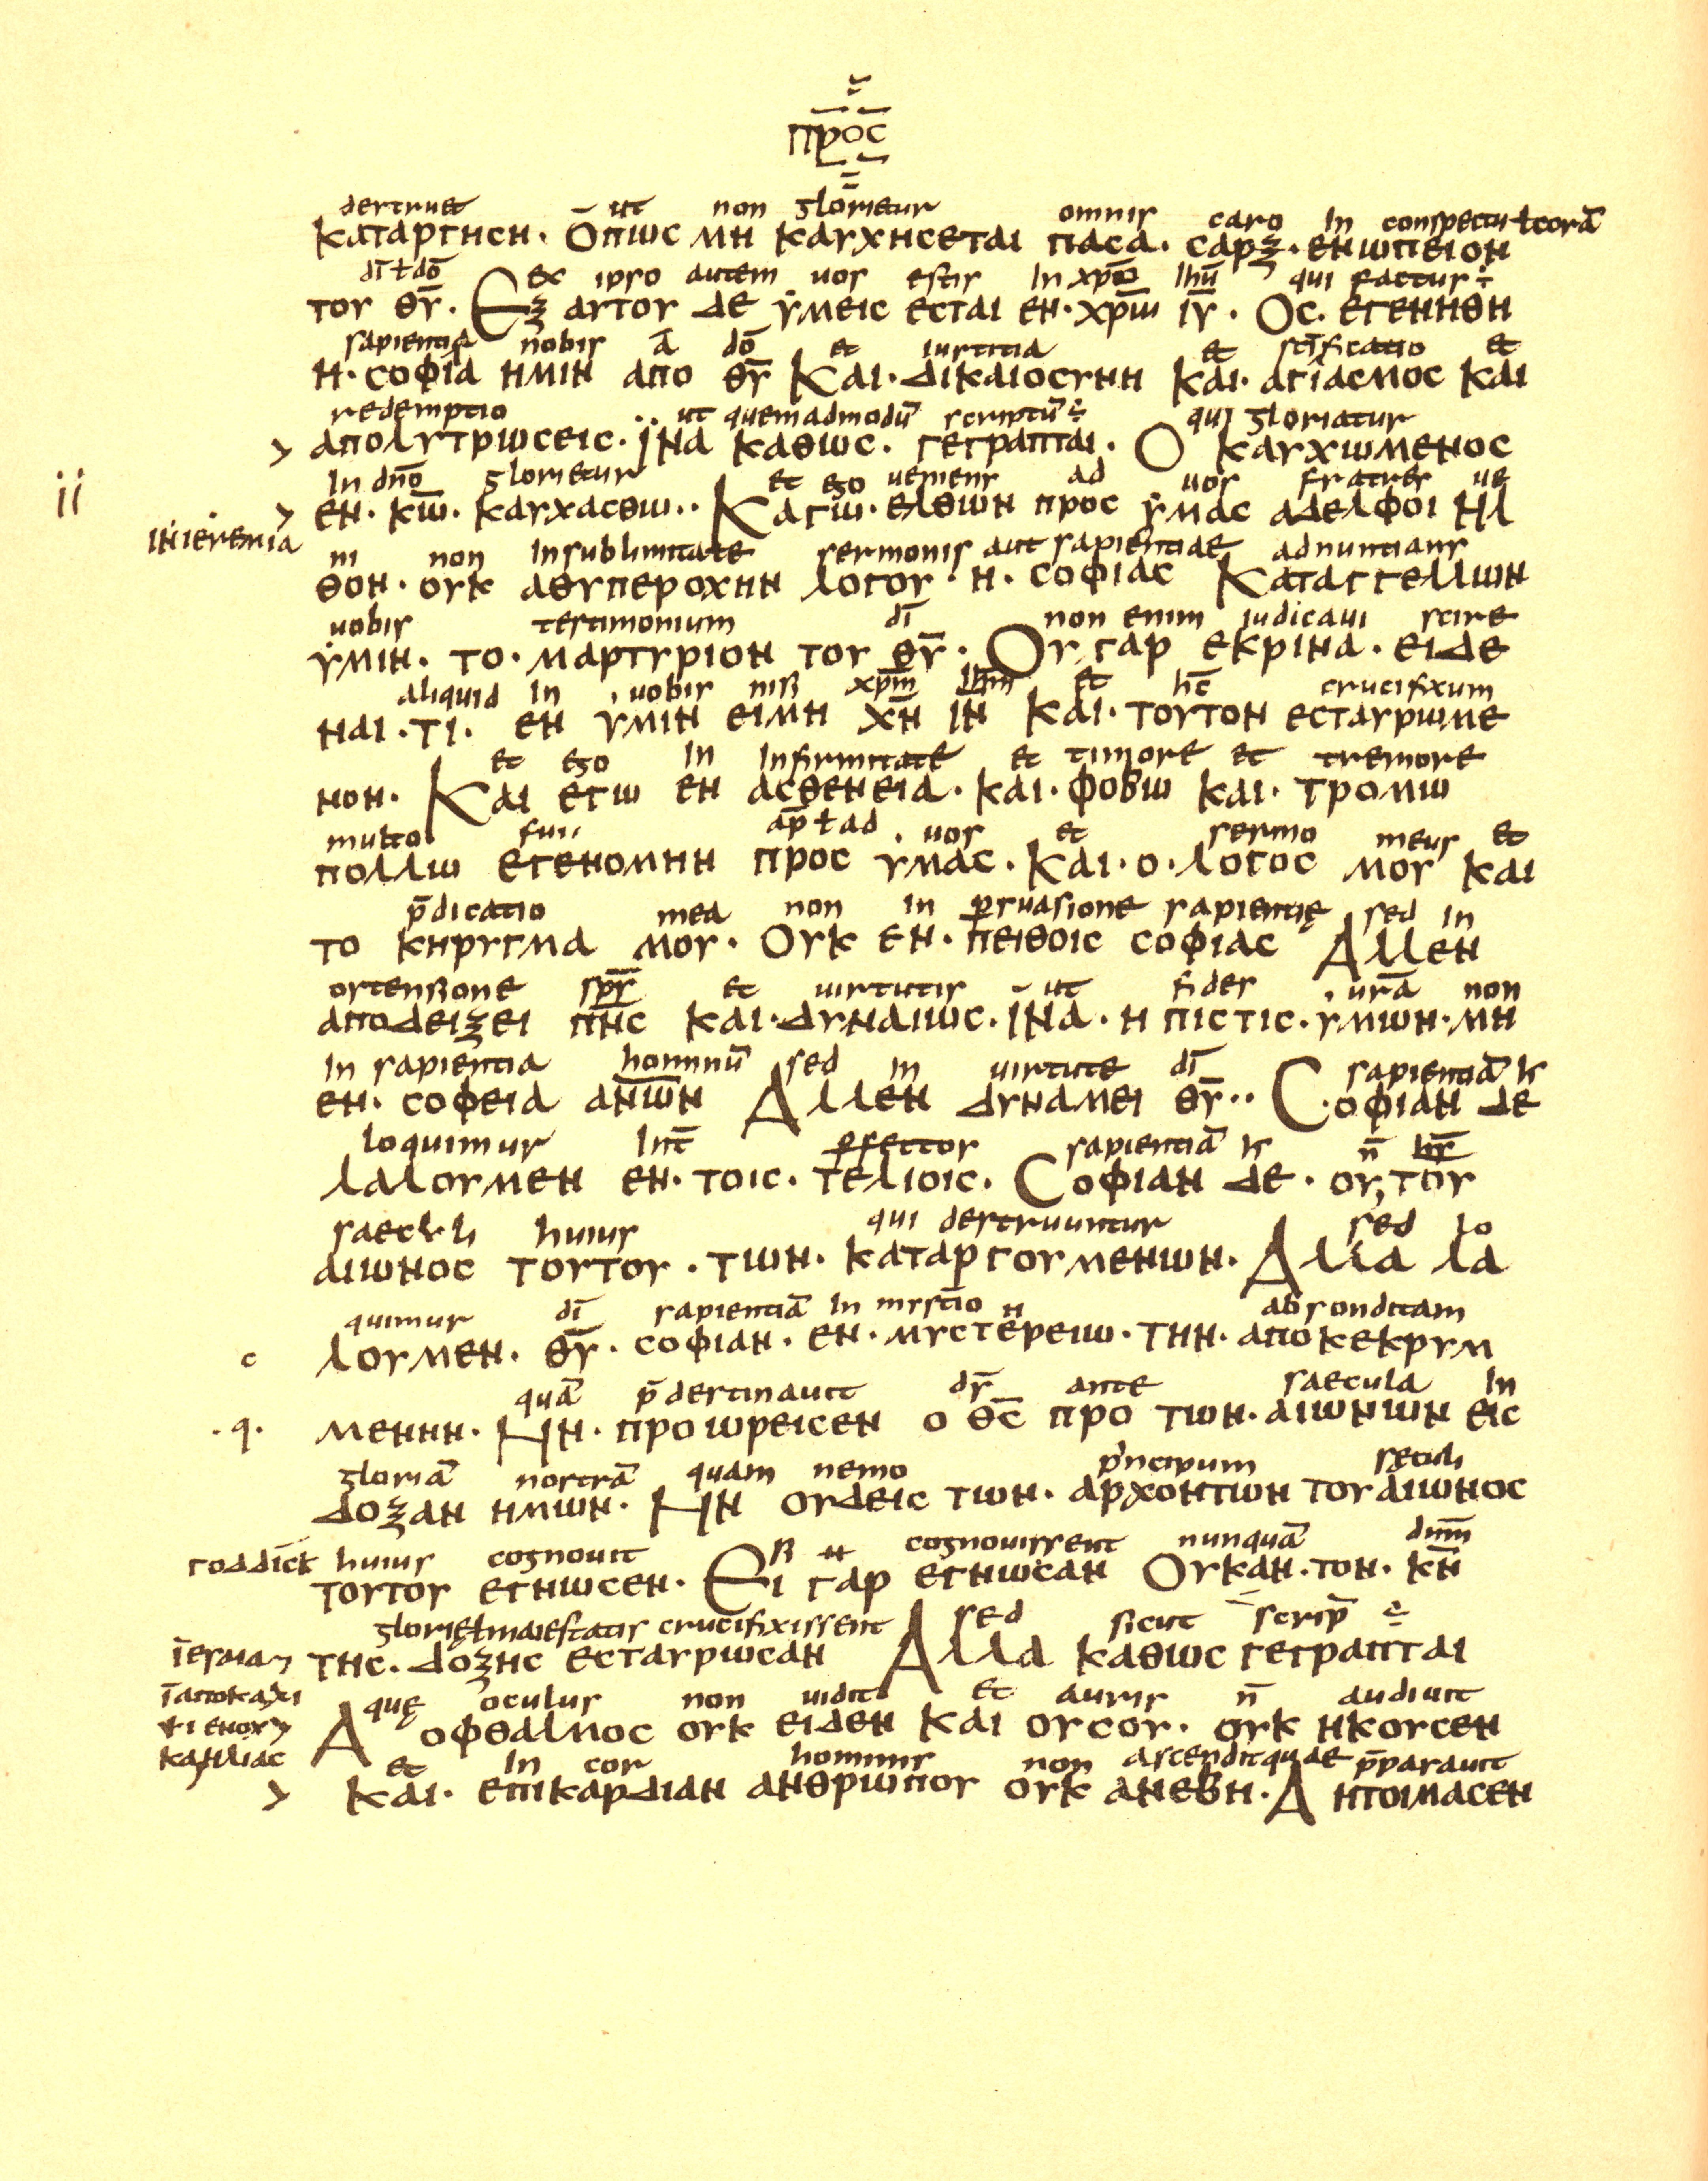 προς
destruet ut non glorietur omnis caro in conspectu ł corā
καταργηση· Οπως μη καυχησεται πασα· σαρξ· ενωπειον
dī ł dō ex ipso autem vos estis in xpō ihū qui factus ÷
του θ̅υ̅· Εξ αυτου δε υμεις εσται εν· χρω̅ ιυ̅· Ος· εγενηθη
sapientia nobis a dō et iustitia et scīficatio et
η· σοφια ημιν απο θ̅υ̅ Και· δικαιοσυνη και· αγιασμος και
redemptio ut quemadmodū scriptū ÷ qui gloriatur
> απολυτρωσεις· ϊνα καθως· γεγραπται· Ο καυχωμενος
ii
in dnō glorietur et ego veniens ad vos fratres ve
> εν· κω̅· καυχασθω·· Καγω· ελθων προς υμας αδελφοι ηλ
in ieremia
ni non in sublimitate sermonis aut sapientiae adnuntians
θον· ουκ αθυπεροχην λογου· η· σοφιας Καταγγελλων
vobis testimonium dī non enim iudicavi scire
υμιν· το· μαρτυριον του θ̅υ̅· Ου γαρ εκρινα· ειδε
aliquid in vobis nisi xpm̅ ihm̅ et hc̄ crucifixum
ναι· τι· εν υμιν ειμη χ̅ν̅ ι̅ν̅ και· τουτον εσταυρωμε
et ego in infirmitate et timore et tremore
νον· Και εγω εν ασθενεια· και· φοβω και· τρομω
multo fui ap̄ ł ad vos et sermo meus et
πολλω εγενομην προς υμας· και· ο· λογος μου και
p̄dicatio mea non in persuasione sapientię sed in
το κηρυγμα μου· Ουκ εν· πειθοις σοφιας Αλλεν
ostensione spr̄ et virtutis ut fides vrā non
αποδειξει π̅ν̅ς και· δυναμως· ϊνα· η πιστις· υμων· μη
in sapientia hominū sed in virtute dī sapientiā
εν· σοφεια αν̅ω̅ν Αλλεν δυναμει θ̅υ̅·· Σοφιαν δε
loquimur int̄ perfectos sapientiā n̄
λαλουμεν εν· τοις· τελιοις· Σοφιαν δε· ου, του
saeculi huius qui destruuntur sed lo
αιωνος τουτου· των· καταργουμενων· Αλλα λα
quimur dī sapientiā in mystīo absconditam
c λουμεν· θ̅υ̅· σοφιαν· εν· μυστερειω· την· αποκεκρυμ
quā p̄destinavit ds̄ ante saecula in
·q· μενην· Ην· προωρεισεν ο θ̅ς̅ προ των· αιωνων εις
gloriā nostrā quam nemo principum sęculi
δοξαν ημων· Ην ουδεις των· αρχοντων του αιωνος
huius cognovit si cognovissent nunquā dnm̅
τουτου εγνωσεν· Ει γαρ εγνωσαν Ουκαν· τον· κ̅ν̅
glorię ł maiestatis crucifixissent sed sicut scrip̄ ÷
της· δοξης εσταυρωσαν Αλλα καθως γεγραπται
quę oculus non vidit et auris n̄ audivit
Α οφθαλμος ουκ ειδεν και ουσου· ουκ ηκουσεν
et in cor hominis non ascendit quae p̄paravit
> και· επικαρδιαν ανθρωπου ουκ ανεβη· Α ητοιμασεν